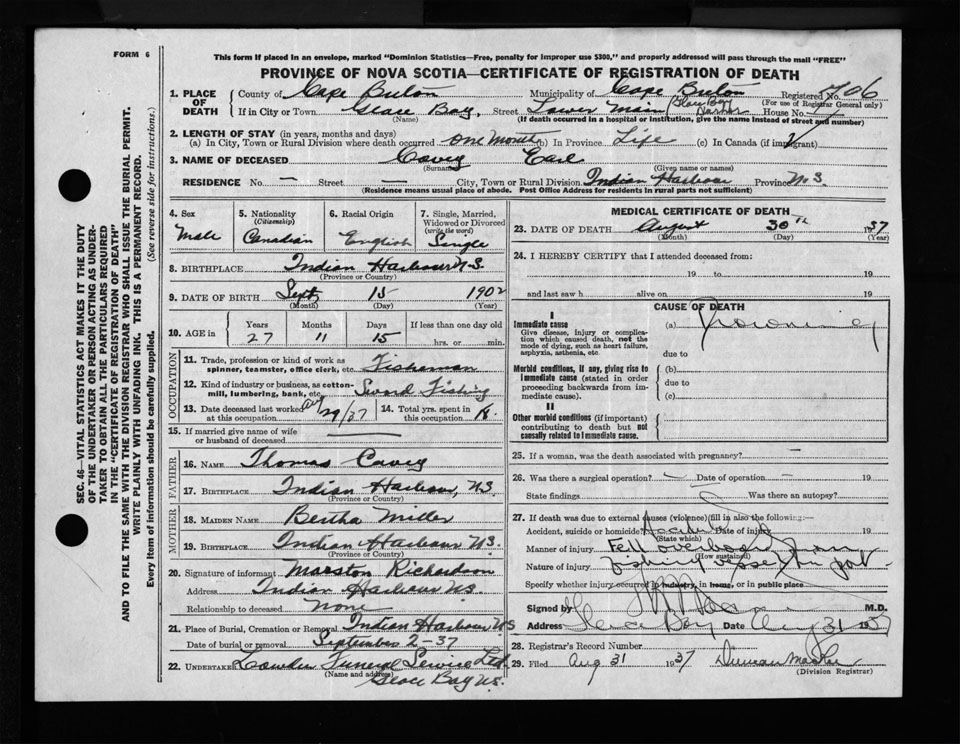 FORM 6
This form if placed in an envelope, marked "Dominion Statistics—Free, penalty for improper use $300," and properly addressed will pass through the mail "FREE"
PROVINCE OF NOVA SCOTIA—CERTIFICATE OF REGISTRATION OF DEATH
SEC. 46—VITAL STATISTICS ACT MAKES IT THE DUTY
OF THE UNDERTAKER OR PERSON ACTING AS UNDER-
TAKER TO OBTAIN ALL THE PARTICULARS REQUIRED
IN THE "CERTIFICATE OF REGISTRATION OF DEATH"
AND TO FILE THE SAME WITH THE DIVISION REGISTRAR WHO SHALL ISSUE THE BURIAL PERMIT.
WRITE PLAINLY WITH UNFADING INK. THIS IS A PERMANENT RECORD.
Every item of information should be carefully supplied. (See reverse side for instructions.)
1. PLACE OF DEATH County of Cape Breton Municipality of Cape Breton Registered No. 706
(For use of Registrar General only)
If in City or Town Glace Bay, Street Lower Main Glace Bay Harbor House No.
(Name) (If death occurred in a hospital or institution, give the name instead of street and number)
2. LENGTH OF STAY (in years, months and days)
(a) In City, Town or Rural Division where death occurred one Month (b) In Province Life (c) In Canada (if immigrant)
3. NAME OF DECEASED Covey Earl
(Surname) (Given name or names)
RESIDENCE No. — Street — City, Town or Rural Division Indian Harbour Province N.S.
(Residence means usual place of abode. Post Office Address for residents in rural parts not sufficient)
4. Sex Male
5. Nationality (Citizenship) Canadian
6. Racial Origin English
7. Single, Married, Widowed or Divorced (write the word) Single
8. BIRTHPLACE Indian Harbour N.S.
(Province or Country)
9. DATE OF BIRTH Sept 15 1902
(Month) (Day) (Year)
10. AGE in Years 27 Months 11 Days 15 If less than one day old hrs. or min.
OCCUPATION
11. Trade, profession or kind of work as spinner, teamster, office clerk, etc. Fisherman
12. Kind of industry or business, as cotton-mill, lumbering, bank, etc. Sword Fishing
13. Date deceased last worked at this occupation Aug 29/37 14. Total yrs. spent in this occupation 18.
15. If married give name of wife or husband of deceased —
FATHER
16. NAME Thomas Covey
17. BIRTHPLACE Indian Harbour, N.S.
(Province or Country)
MOTHER
18. MAIDEN NAME Bertha Miller
19. BIRTHPLACE Indian Harbour N.S.
(Province or Country)
20. Signature of informant Marston Richardson
Address Indian Harbour N.S.
Relationship to deceased none
21. Place of Burial, Cremation or Removal Indian Harbour N.S
Date of burial or removal September 2-37
22. UNDERTAKER Funeral Service Ltd
(Name and address) Glace Bay N.S.
MEDICAL CERTIFICATE OF DEATH
23. DATE OF DEATH August 30th 1937
(Month) (Day) (Year)
24. I HEREBY CERTIFY that I attended deceased from:
19 to 19
and last saw h alive on 19
CAUSE OF DEATH
I
Immediate cause
Give disease, injury or complication which caused death, not the mode of dying, such as heart failure, asphyxia, asthenia, etc.
(a) Drowning
due to
Morbid conditions, if any, giving rise to immediate cause (stated in order proceeding backwards from immediate cause).
(b)
due to
(c)
II
Other morbid conditions (if important) contributing to death but not causally related to immediate cause.
25. If a woman, was the death associated with pregnancy? —
26. Was there a surgical operation? Date of operation 19
State findings Was there an autopsy?
27. If death was due to external causes (violence) fill in also the following:—
Accident, suicide or homicide? Accident Date of injury 19
(State which)
Manner of injury Fell overboard from
(How sustained)
Nature of injury fishing vessel in port
Specify whether injury occurred in industry, in home, or in public place
Signed by M.D.
Address Glace Bay Date Aug 31 1937
28. Registrar's Record Number
29. Filed Aug 31 1937 Duncan
(Division Registrar)